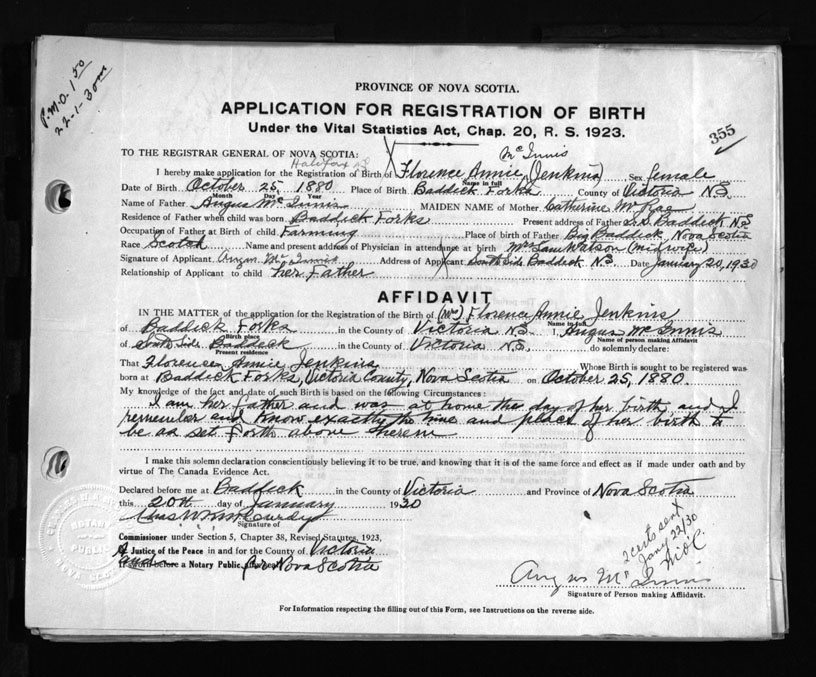 P.M.O. 1 50
22-1-30
PROVINCE OF NOVA SCOTIA.
APPLICATION FOR REGISTRATION OF BIRTH
Under the Vital Statistics Act, Chap. 20, R. S. 1923.
355
TO THE REGISTRAR GENERAL OF NOVA SCOTIA:
Halifax N.S.
Mc Innis
I hereby make application for the Registration of Birth of Florence Annie (Jenkins) Sex female
Name in full
Date of Birth October 25, 1880 Place of Birth Baddeck Forks County of Victoria N.S.
Month Day Year
Name of Father Angus Mc Innis MAIDEN NAME of Mother Catherine McRae
Residence of Father when child was born Baddeck Forks Present address of Father S.S. Baddeck N.S.
Occupation of Father at Birth of child Farming Place of birth of Father Big Baddeck, Nova Scotia
Race Scotch Name and present address of Physician in attendance at birth Mrs Sam Watson (midwife)
Signature of Applicant Angus Mc Innis Address of Applicant South Side Baddeck N.S. Date January 20, 1930
Relationship of Applicant to child her Father
AFFIDAVIT
IN THE MATTER of the application for the Registration of the Birth of (Mrs) Florence Annie Jenkins
Name in full
of Baddeck Forks in the County of Victoria N.S. I, Angus Mc Innis
Birth place Name of person making Affidavit
of South Side Baddeck in the County of Victoria N.S. do solemnly declare:
Present residence
That Florence Annie Jenkins Whose Birth is sought to be registered was
born at Baddeck Forks, Victoria County, Nova Scotia on October 25, 1880.
My knowledge of the fact and date of such Birth is based on the following Circumstances:
I am her father and was at home the day of her birth, and I
remember and know exactly the time and place of her birth to
be as set forth above herein
I make this solemn declaration conscientiously believing it to be true, and knowing that it is of the same force and effect as if made under oath and by
virtue of The Canada Evidence Act.
Declared before me at Baddeck in the County of Victoria and Province of Nova Scotia
this 20th day of January 1930
Signature of
Commissioner under Section 5, Chapter 38, Revised Statutes, 1923,
A Justice of the Peace in and for the County of Victoria
a Notary Public, for Nova Scotia
NOTARY
PUBLIC
NOVA SCOTIA
2 certs sent
Jany 22/30
Angus Mc Innis
Signature of Person making Affidavit.
For Information respecting the filling out of this Form, see Instructions on the reverse side.